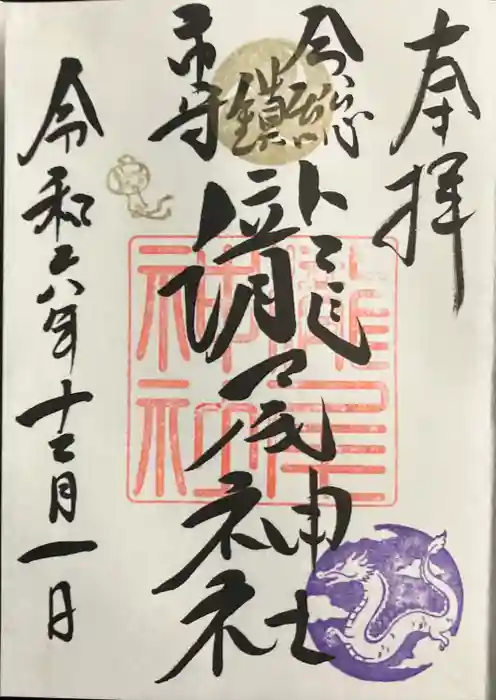 奉拝
鎮守
瀧尾神社
瀧尾
神社
令和六年十二月一日